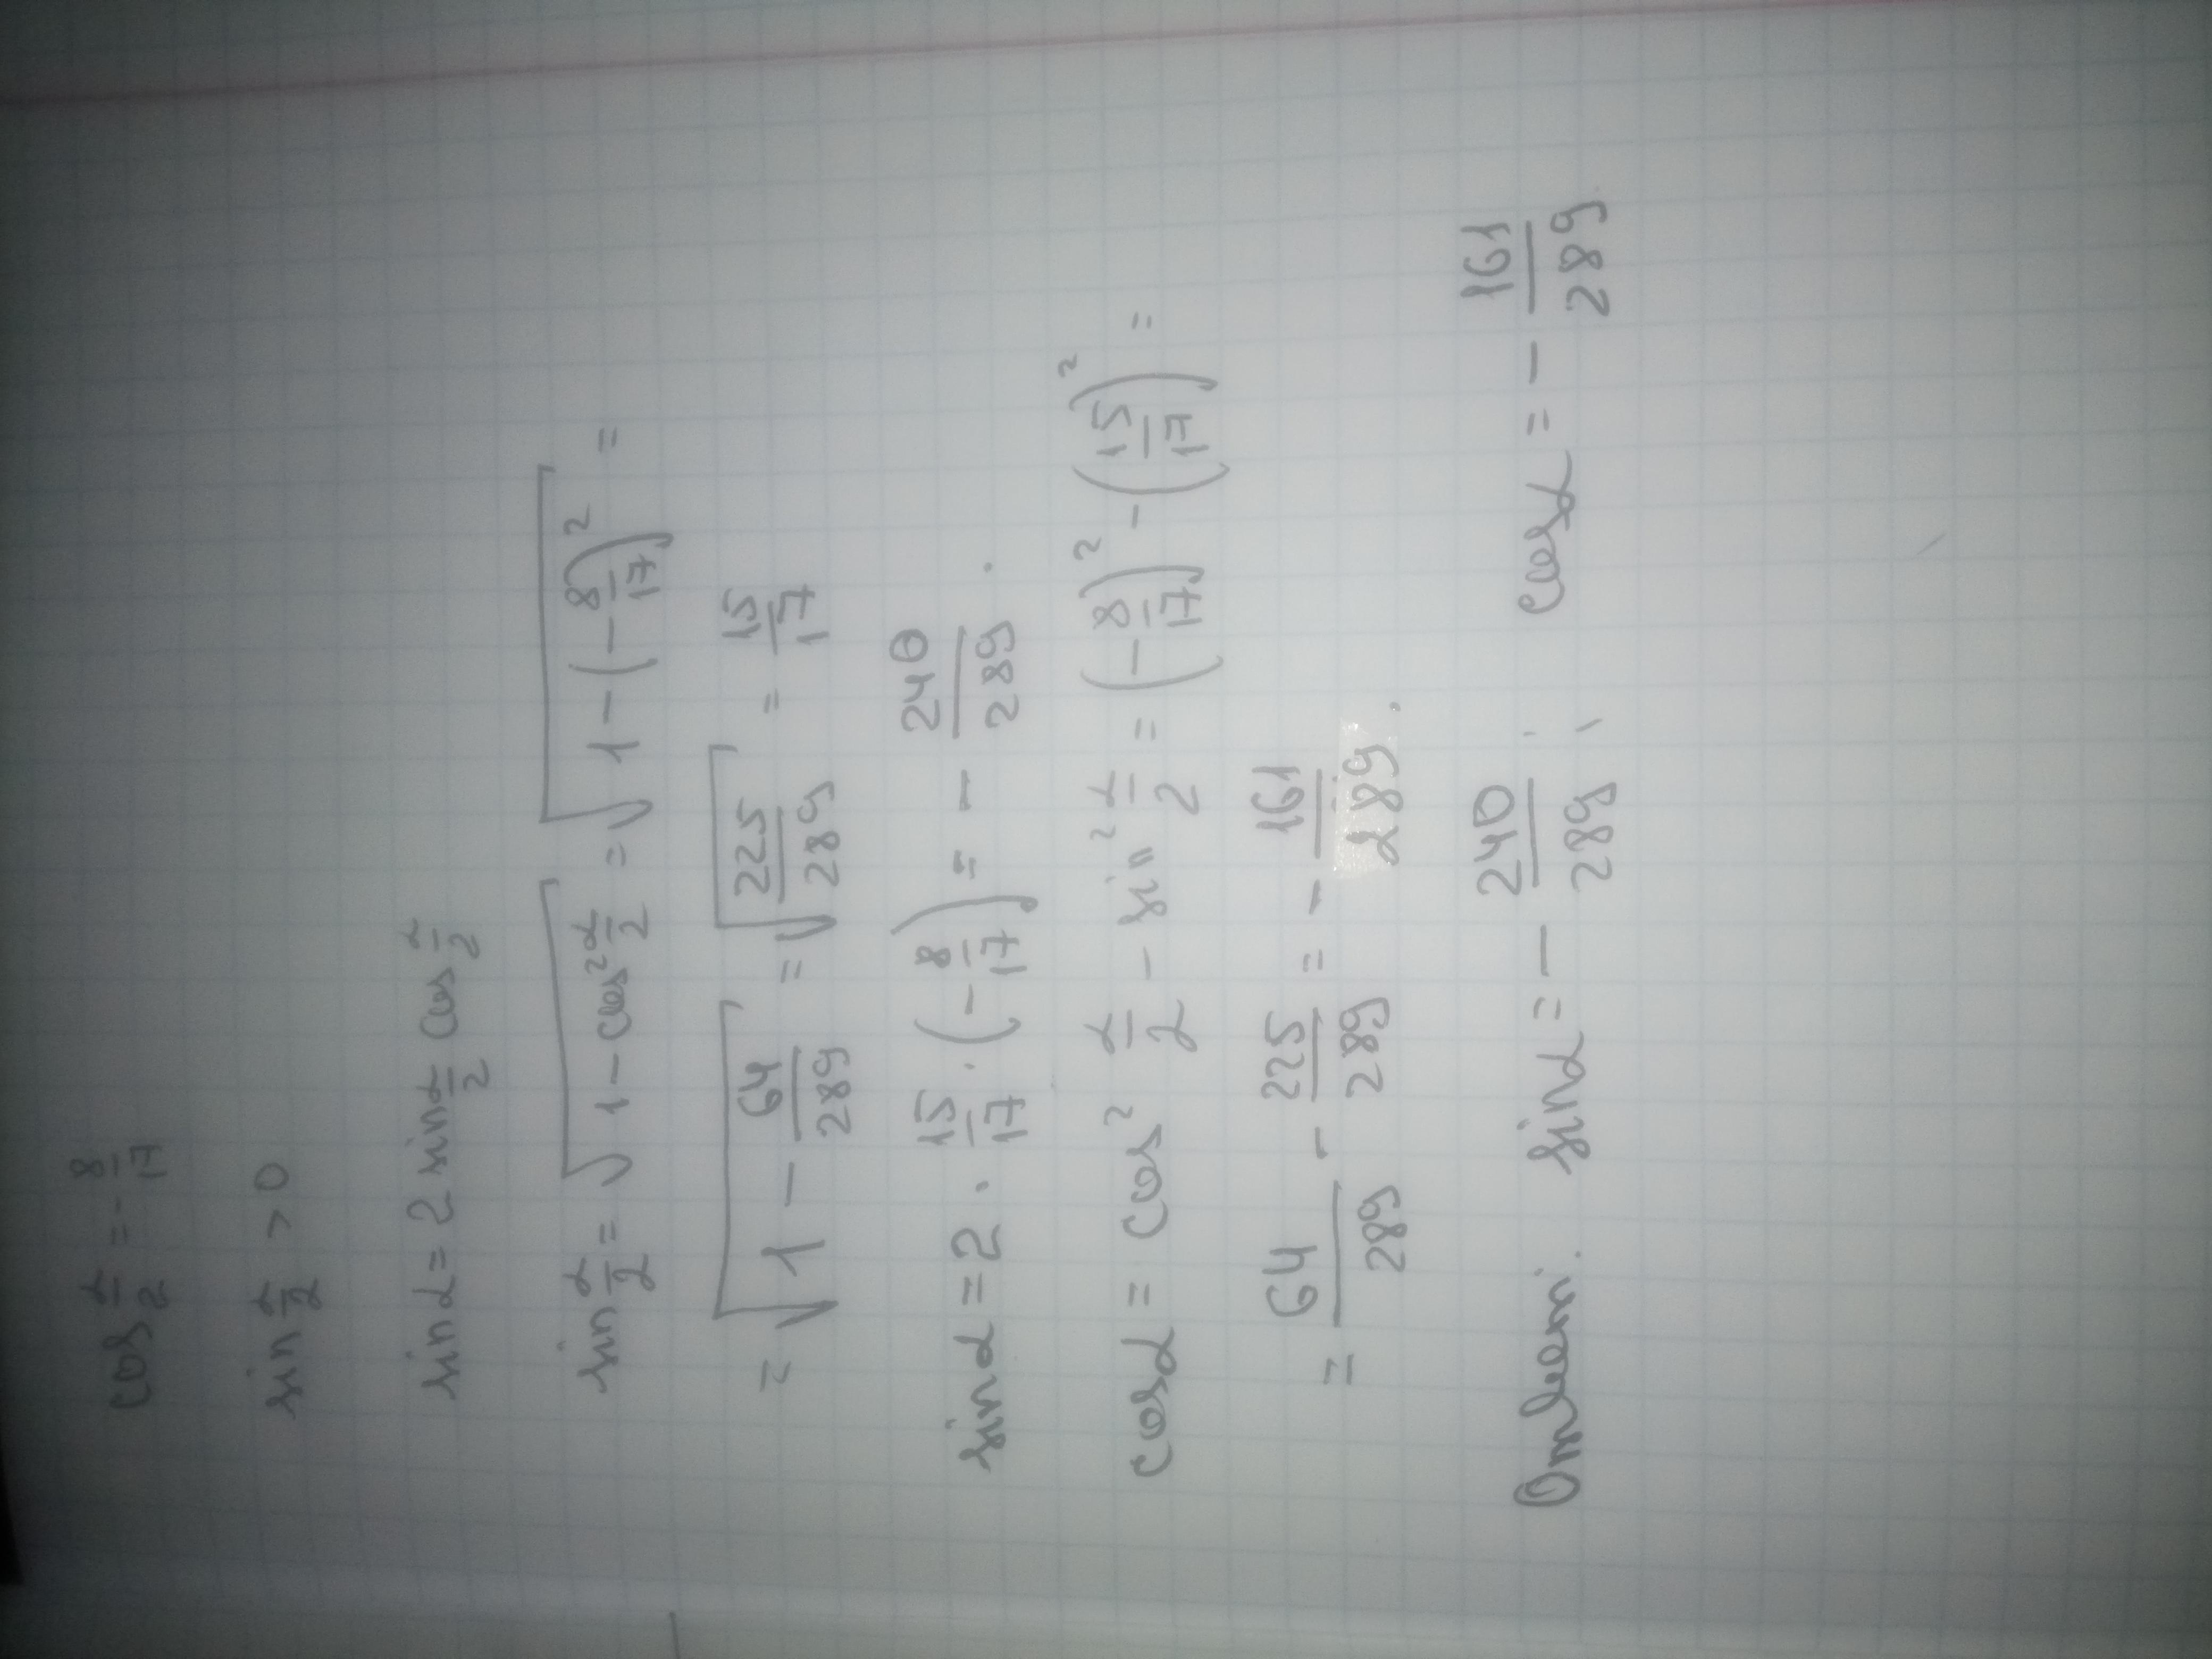 cos α/2 = - 8/17
sin α/2 > 0
sin α = 2 sin α/2 cos α/2
sin α/2 = √(1 - cos² α/2) = √(1 - (- 8/17)²) =
= √(1 - 64/289) = √(225/289) = 15/17
sin α = 2 · 15/17 · (- 8/17) = - 240/289 .
cos α = cos² α/2 - sin² α/2 = (- 8/17)² - (15/17)² =
= 64/289 - 225/289 = - 161/289 .
Ответ. sin α = - 240/289 ; cos α = - 161/289